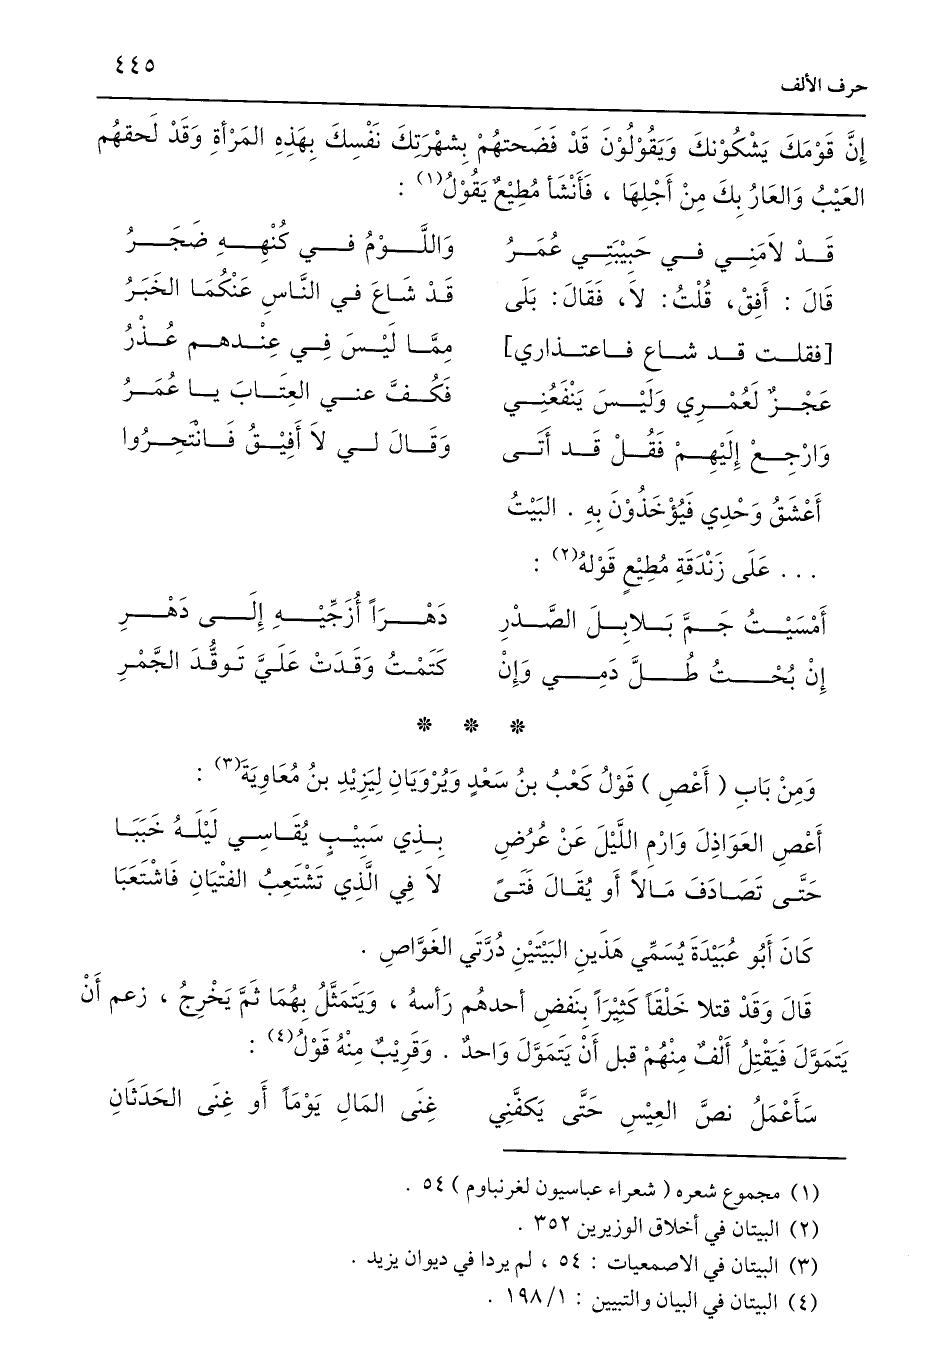 حرف الألف ٤٤٥
إِنَّ قَوْمَكَ يَشْكُوْنكَ وَيَقُوْلُوْنَ قَدْ فَضَحتهُمْ بِشهْرَتِكَ نَفْسِكَ بِهَذِهِ المَرْأَةِ وَقَدْ لَحقهُم
العَيْبُ وَالعَارُ بِكَ مِنْ أَجْلِهَا ، فَأَنْشَأَ مُطِيْعٌ يَقُوْلُ(١) :
قَـدْ لاَمَنِـي فـي حَبِيْبَتِـي عُمَـرُ وَاللَّـوْمُ فـي كُنْهِـهِ ضَجَـرُ
قَالَ : أَفِقْ، قُلْتُ : لاَ، فَقَالَ : بَلَى قَدْ شَاعَ في النَّاسِ عَنْكُمَا الخَبَرُ
[فقلـت قـد شـاع فـاعتـذاري] مِمَّـا لَيْـسَ فِي عِنْـدهـم عُـذْرُ
عَجْـزٌ لَعُمْـرِي وَلَيْـسَ يَنْفَعُنِـي فَكُـفَّ عنـي العِتَـابَ يـا عُمَـرُ
وَارْجِـعْ إِلَيْهِـمْ فَقُـلْ قَـد أَتَـى وَقَـالَ لـي لاَ أَفِيْـقُ فَـانْتحِـرُوا
أَعْشَقُ وَحْدِي فَيُؤْخَذُوْنَ بِهِ . البَيْتُ
. . . عَلَى زَنْدَقَةِ مُطِيْعٍ قَوْلهُ(٢) :
أَمْسَيْـتُ جَـمَّ بَـلابِـلَ الصَّـدْرِ دَهْـرَاً أُزَجِّيْـهِ إِلَـى دَهْـرِ
إِنْ بُحْـتُ طُـلَّ دَمِـي وَإِنْ كَتَمْتُ وَقَدَتْ عَلَيَّ تَوقُّدَ الجَّمْرِ
* * *
وَمِنْ بَابِ ( أَعْص ) قَوْلُ كَعْبُ بنُ سَعْدٍ وَيُرْوَيَانِ لِيَزِيْدِ بنُ مُعَاوِيَةَ(٣) :
أَعْصِ العَوَاذِلَ وَارْمِ اللَّيْلَ عَنْ عُرُضِ بِـذي سَبِيْبٍ يُقَـاسِـي لَيْلَـهُ خَبَبَـا
حَتَّـى تَصَـادَفَ مَـالاً أو يُقَـالَ فَتَـىً لاَ فِي الَّذِي تَشْتَعِبُ الفتْيَانِ فَاشْتَعَبَا
كَانَ أَبُو عُبَيْدَةَ يُسَمِّي هَذَينِ البَيْتَيْنِ دُرَّتي الغَوَّاصِ .
قَالَ وَقَدْ قتلا خَلْقَاً كَثِيْرَاً بِنَفضِ أحدهُم رَأسهُ ، وَيَتَمَثَّلُ بِهُمَا ثمَّ يَخْرِجُ ، زعم أَنْ
يَتَمَوَّلَ فَيَقْتِلُ أَلْفٌ مِنْهُمْ قبل أَنْ يَتَمَوَّلَ وَاحدٌ . وَقَرِيْبٌ مِنْهُ قَوْلُ(٤) :
سَأَعْمَلُ نصَّ العِيْسِ حَتَّى يَكفَّنِي غِنَى المَالِ يَوْمَاً أو غِنَى الحَدَثَانِ
(١) مجموع شعره ( شعراء عباسيون لغرنباوم ) ٥٤ .
(٢) البيتان في أخلاق الوزيرين ٣٥٢ .
(٣) البيتان في الاصمعيات : ٥٤ ، لم يردا في ديوان يزيد .
(٤) البيتان في البيان والتبيين : ١٩٨/١ .